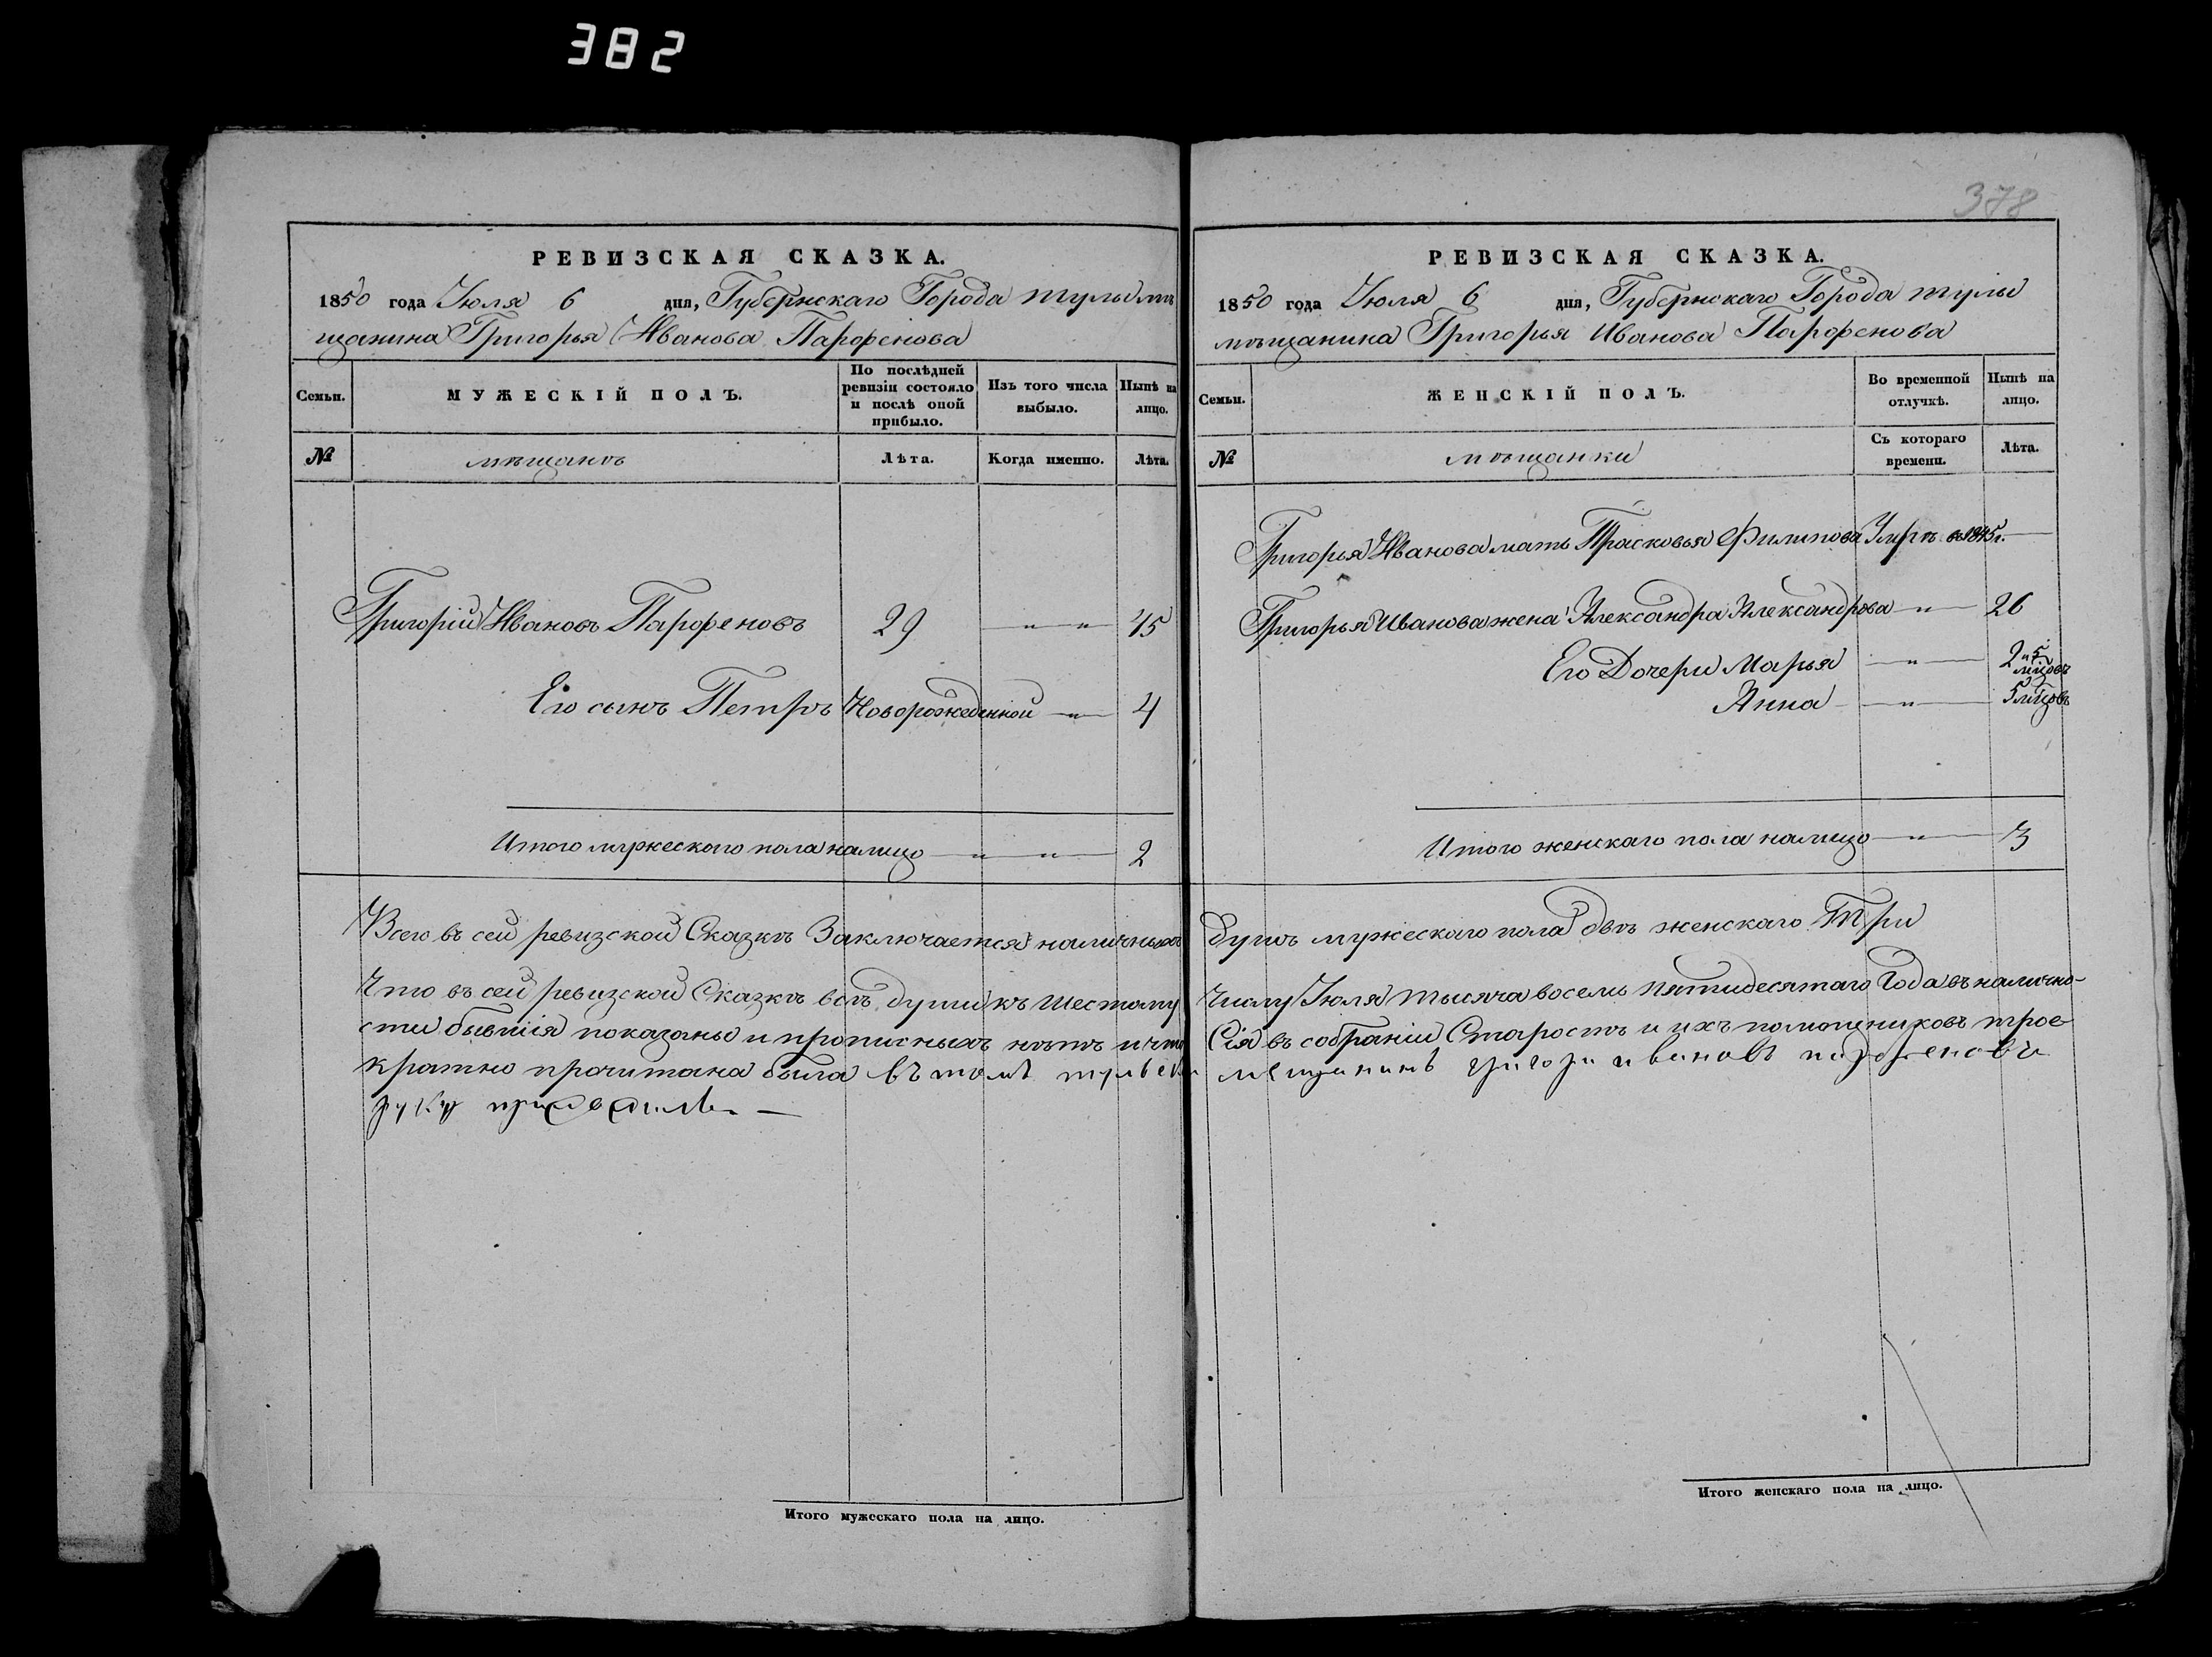 382
РЕВИЗСКАЯ СКАЗКА.
1850 года Июля 6 дня, Губернскаго Города тулы мѣ
щанина Григорья Иванова Парфенова
Семьи.
МУЖЕСКІЙ ПОЛЪ.
По послѣдней ревизіи состояло и послѣ оной прибыло.
Изъ того числа выбыло.
Нынѣ на лицо.
№
мѣщанъ
Лѣта.
Когда именно.
Лѣта.
Григорій Ивановъ Парфеновъ 29 — " — " — 45
Его сынъ Петръ Новорожденной — " — 4
Итого мужескаго пола налицо — " — " — 2
378
РЕВИЗСКАЯ СКАЗКА.
1850 года Июля 6 дня, Губернскаго Города тулы
мѣщанина Григорья Иванова Парфенова
Семьи.
ЖЕНСКІЙ ПОЛЪ.
Во временной отлучкѣ.
Нынѣ на лицо.
№
мѣщанки
Съ котораго времени.
Лѣта.
Григорья Иванова мать Прасковья Филипова в 1845 г. —
Григорья Иванова жена Александра Александрова — " — 26
Его Дочери Марья — " — 2 и 5 мцовъ
Анна — " — 5 мцовъ
Итого женскаго пола налицо — " — 3
Всего въ сей ревизской Сказкѣ Заключается наличныхъ Душъ мужескаго пола двѣ женскаго Три
Что въ сей ревизской Сказкѣ всѣ души къ шестому Числу Июля тысяча восемь пятидесятаго Года въ налично-
сти бывшія показаны и прописныхъ нѣтъ и что Сія въ собраніи Старостъ и ихъ помощниковъ трое
кратно прочитана была въ томъ мещанинъ григори ивановъ парфеновъ
руку приложилъ —
Итого мужескаго пола на лицо.
Итого женскаго пола на лицо.